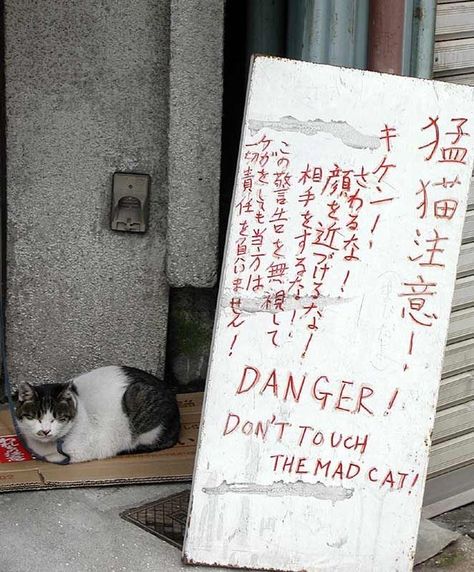 猛猫注意!、
キケン!、
さわるな!
顔を近づけるな!
相手をするな!、
この警告を無視して
ケガをしても当方は
一切責任を負いません!
DANGER!
DON'T TOUCH
THE MAD CAT!